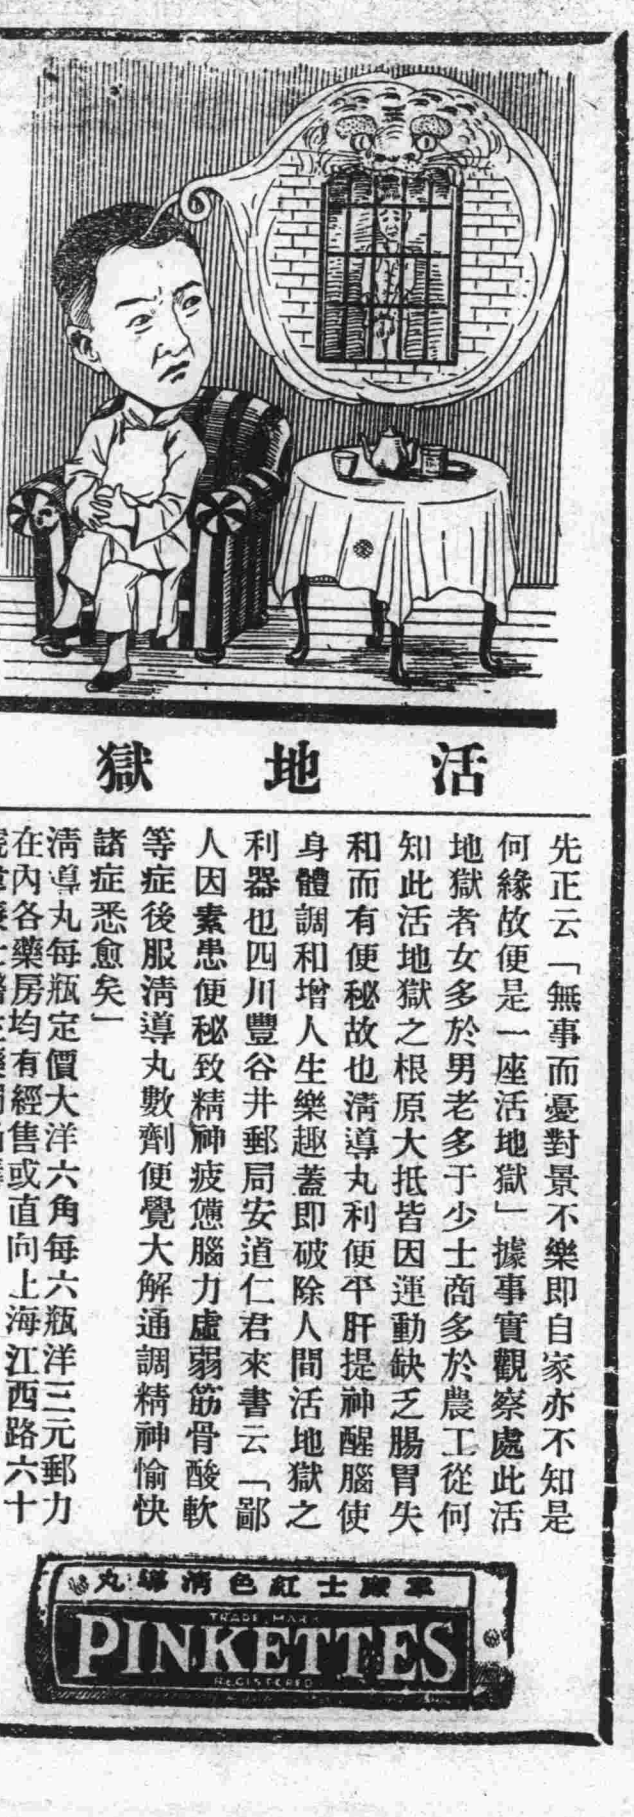 活地獄
先正云「無事而憂對景不樂即自家亦不知是
何緣故便是一座活地獄」據事實觀察處此活
地獄者女多於男老多于少士商多於農工從何
知此活地獄之根原大抵皆因運動缺乏腸胃失
和而有便秘故也淸導丸利便平肝提神醒腦使
身體調和增人生樂趣蓋即破除人間活地獄之
利器也四川豐谷井郵局安道仁君來書云「鄙
人因素患便秘致精神疲憊腦力虛弱筋骨酸軟
等症後服淸導丸數劑便覺大解通調精神愉快
諸症悉愈矣」
淸導丸每瓶定價大洋六角每六瓶洋三元郵力
在內各藥房均有經售或直向上海江西路六十
韋廉士紅色淸導丸
TRADE MARK
PINKETTES
REGISTERED